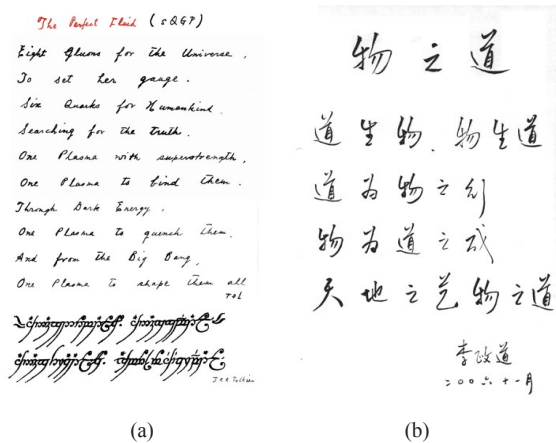 The Perfect Fluid (sQGP)
Eight Gluons for the Universe,
To set her gauge.
Six Quarks for Humankind,
Searching for the truth.
One Plasma with superstrength,
One Plasma to bind them.
Through Dark Energy,
One Plasma to quench them,
And from the Big Bang,
One Plasma to shape them all
TDL
J.R.R. Tolkien
(a)
物之道
道生物、物生道
道为物之形
物为道之成
天地之艺物之道
李政道
二〇〇六十一月
(b)